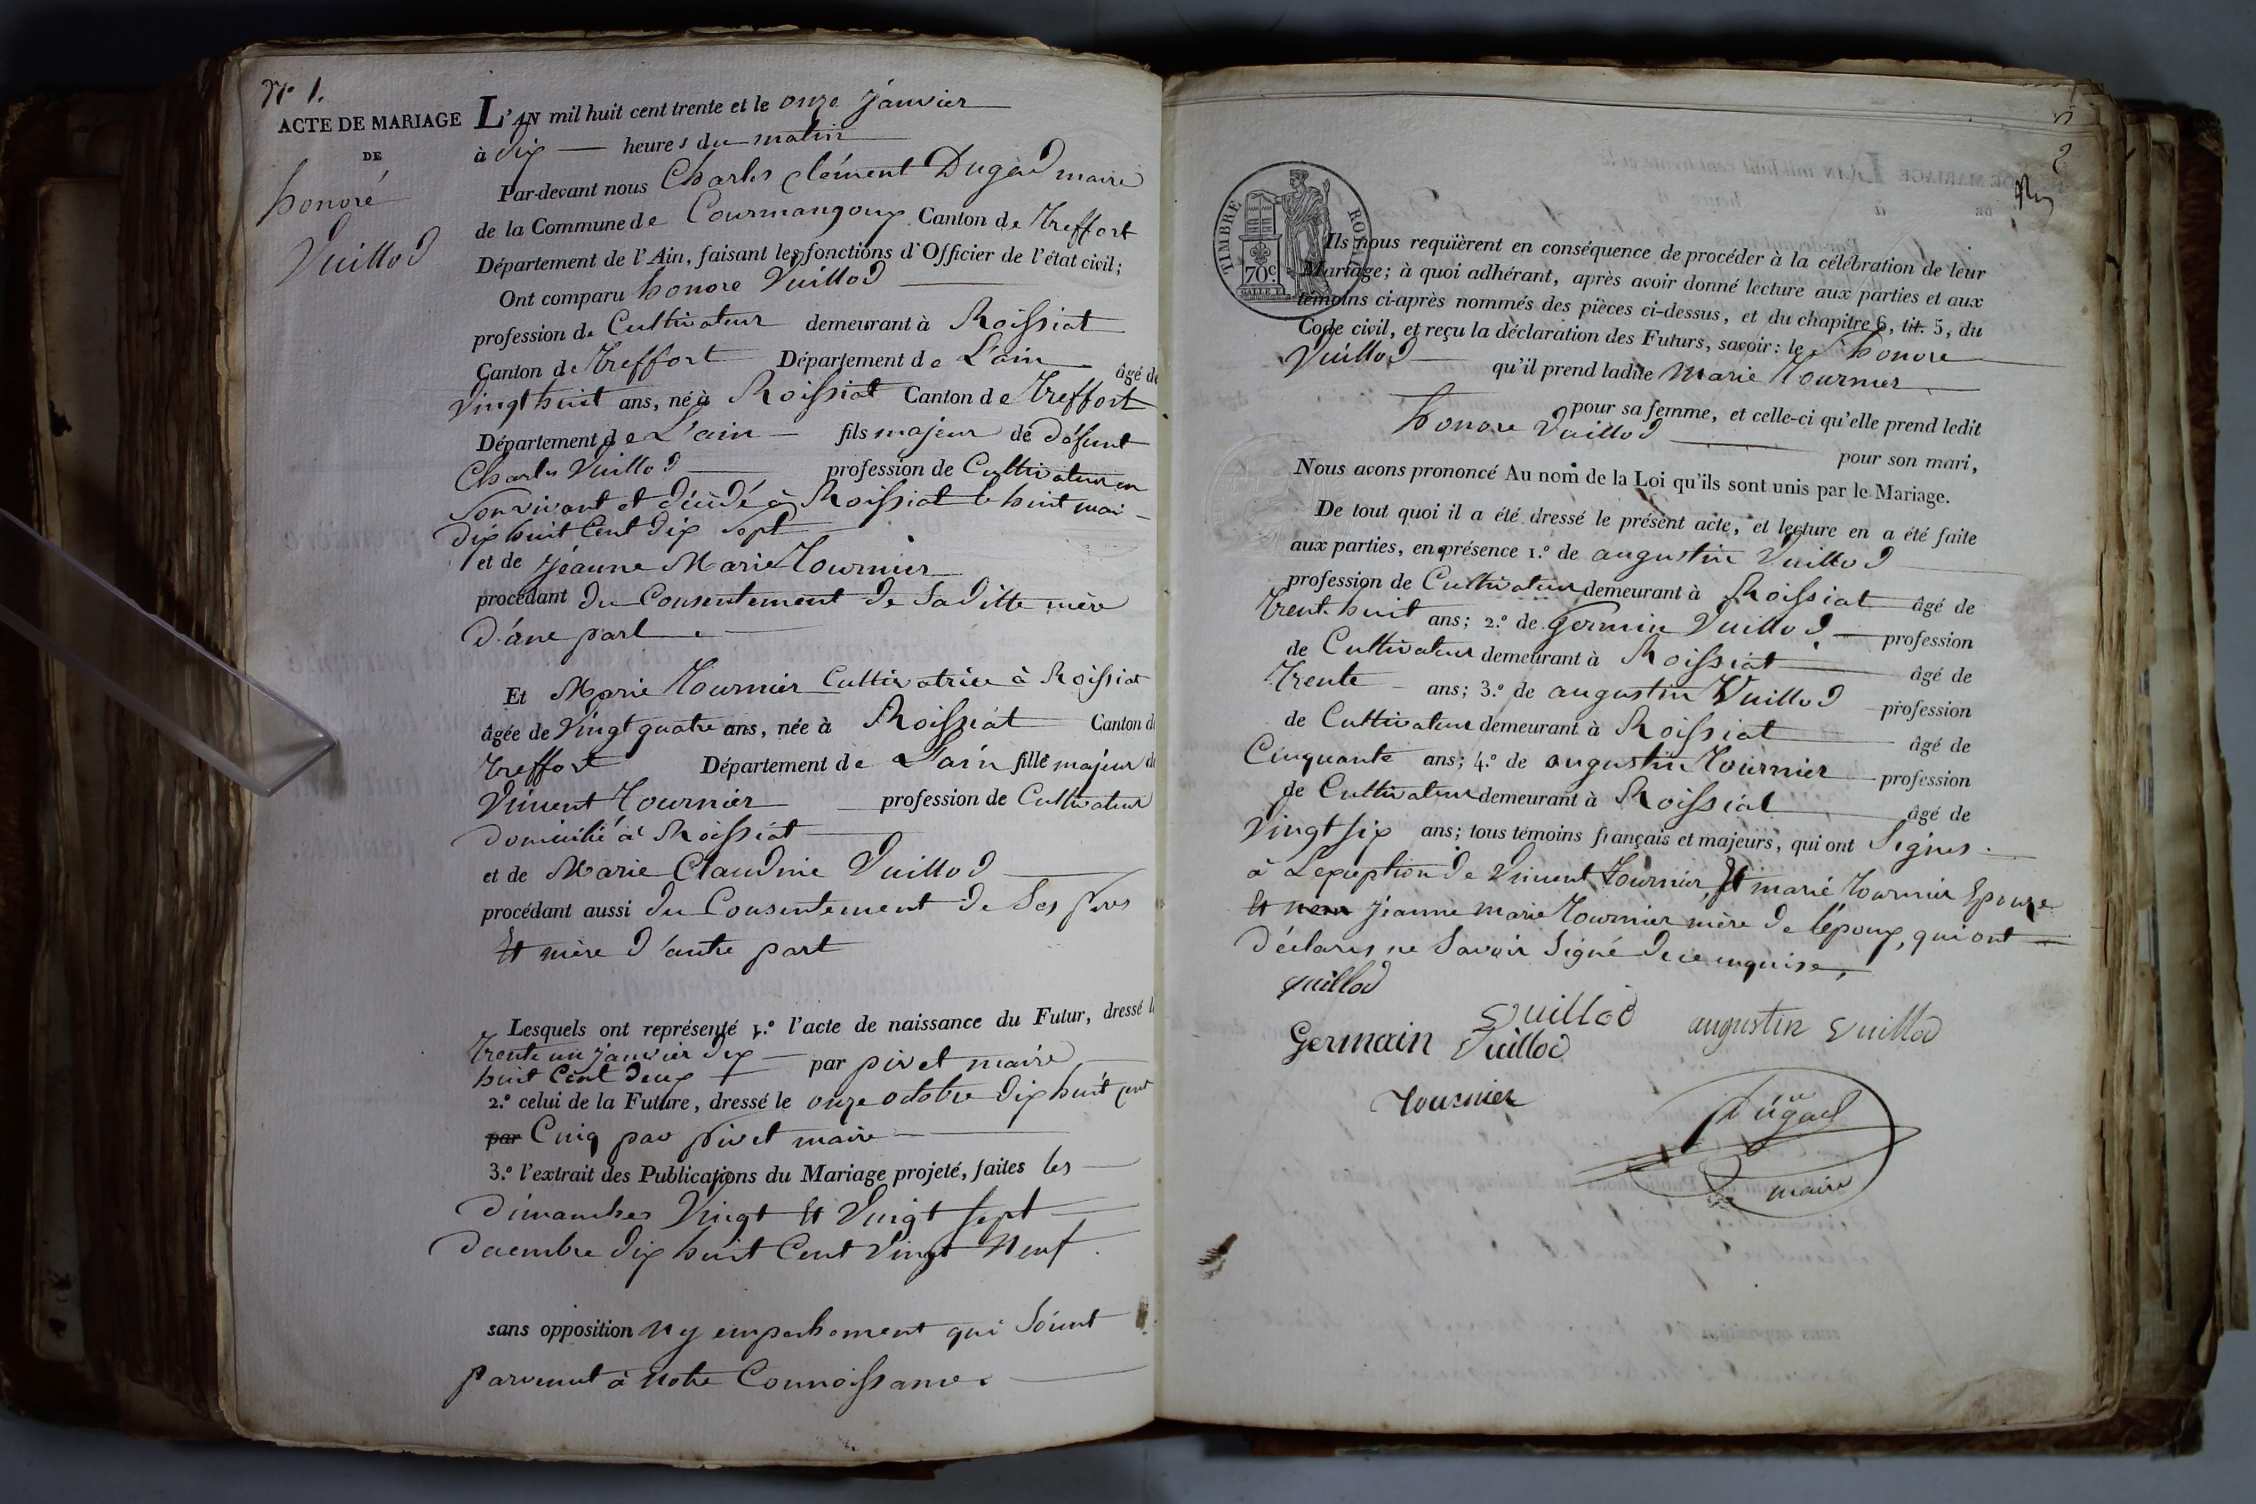 N° 1.
ACTE DE MARIAGE
DE
honoré
Vuillod
L'AN mil huit cent trente et le onze janvier
à dix heures du matin
Par-devant nous Charles clément Dugad maire
de la Commune de Courmangoux Canton de Treffort
Département de l'Ain, faisant les fonctions d'Officier de l'état civil;
Ont comparu honore Vuillod
profession de Cultivateur demeurant à Roissiat
Canton de Treffort Département de L'ain âgé de
Vingt huit ans, né à Roissiat Canton de Treffort
Département de L'ain fils majeur de défunt
Charles Vuillod profession de Cultivateur en
Son vivant et décédé à Roissiat le huit mai
dix huit Cent dix Sept
et de jéanne Marie Tournier
procédant du Consentement de Saditte mère
d'une part.
Et Marie Tournier Cultivatrice à Roissiat
âgée de Vingt quatre ans, née à Roissiat Canton de
Treffort Département de L'ain fille majeur de
Vincent Tournier profession de Cultivateur
domicilié à Roissiat
et de Marie Claudine Vuillod
procédant aussi du Consentement de Ses père
Et mère d'autre part
Lesquels ont représenté 1.° l'acte de naissance du Futur, dressé le
Trente un janvier dix
huit Cent deux par pivet maire
2.° celui de la Future, dressé le onze octobre dix huit cent
par Cinq par pivet maire
3.° l'extrait des Publications du Mariage projeté, faites les
dimanches Vingt Et Vingt Sept
decembre dix huit Cent Vingt Neuf.
sans opposition ny empechement qui Soient
parvenut à Notre Connoissance.
2
TIMBRE ROYAL
70c
Ils nous requièrent en conséquence de procéder à la célébration de leur
Mariage; à quoi adhérant, après avoir donné lecture aux parties et aux
témoins ci-après nommés des pièces ci-dessus, et du chapitre 6, tit. 5, du
Code civil, et reçu la déclaration des Futurs, savoir: le S.r honore
Vuillod qu'il prend ladite Marie Tournier
pour sa femme, et celle-ci qu'elle prend ledit
honore Vuillod pour son mari,
Nous avons prononcé Au nom de la Loi qu'ils sont unis par le Mariage.
De tout quoi il a été dressé le présent acte, et lecture en a été faite
aux parties, en présence 1.° de augustin Vuillod
profession de Cultivateur demeurant à Roissiat âgé de
Trente huit ans; 2.° de Germain Vuillod profession
de Cultivateur demeurant à Roissiat âgé de
Trente ans; 3.° de augustin Vuillod profession
de Cultivateur demeurant à Roissiat âgé de
Cinquante ans; 4.° de augustin Tournier profession
de Cultivateur demeurant à Roissiat âgé de
Vingt six ans; tous témoins français et majeurs, qui ont Signes
à L'exception de Vincent Tournier, Et marie Tournier Epouze
Et jeanne marie Tournier mère de l'époux, qui ont
déclares ne Savoir Signé de ce enquise.
vuillod
vuillod augustin vuillod
Germain Vuillod
Tournier
Dugad
maire